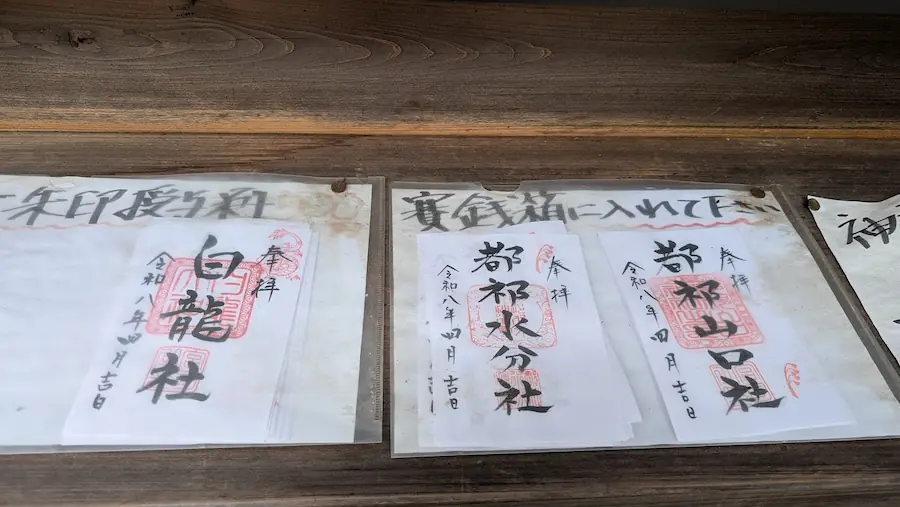 朱印授与所
奉拝
白龍社
令和八年四月吉日
賽銭箱に入れて下さい
奉拝
都祁水分社
令和八年四月吉日
奉拝
都祁山口社
令和八年四月吉日
神